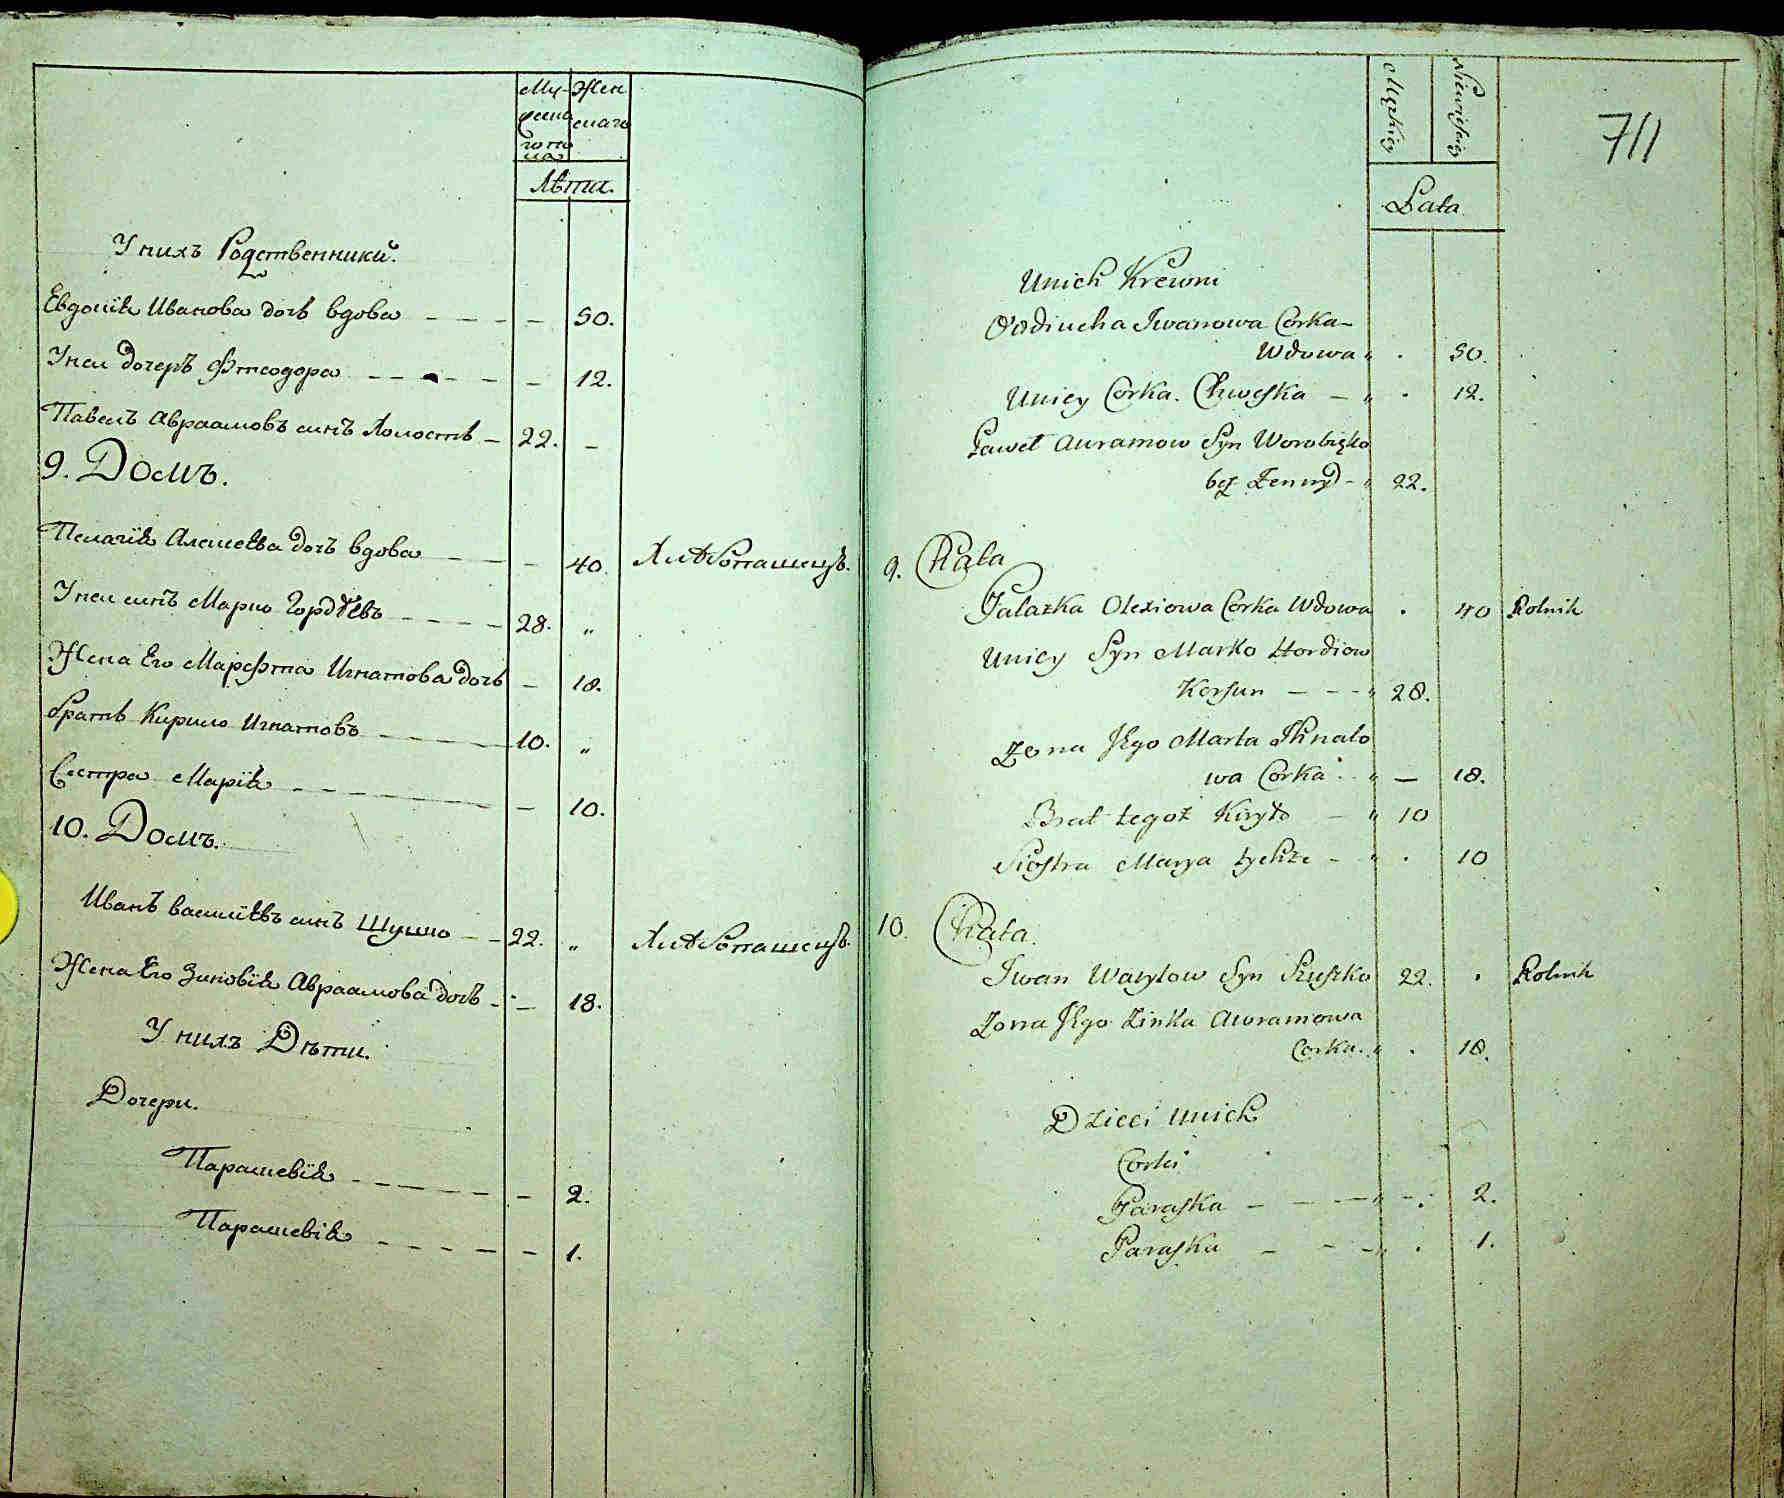 Му-
жеска
го по
ла
Жен
скаго
Лѣта.
У нихъ Родственники.
Евдокїя Иванова дочь вдова — — — — 50.
У неи дочеръ Фтеодора — — — — — 12.
Павелъ Авраамовъ синъ Холостъ — 22. —
9. Домъ.
Пелагїя Алексеѣва дочъ вдова — — — 40. Хлѣбопашецъ.
У неи синъ Марко Гордѣевъ — — — — 28. „
Жена Его Марфта Игнатова дочь — 18.
братъ Кирило Игнатовъ — — — — 10. „
Сестра Марїя — — — — — — — 10.
10. Домъ.
Иванъ василїевъ синъ Шушко — — 22. „ Хлѣбопашецъ.
Жена Его Зиновїя Авраамова дочъ — — 18.
У нихъ Дѣти.
Дочери.
Парашевїя — — — — — — 2.
Парашевїя — — — — — — 1.
Męzkiey
Niewiesciey
711
Lata
Unich Krewni
Owdiucha Iwanowa Corka —
Wdowa „ . 50.
Unicy Corka. Chweska — „ . 12.
Paweł Auramow Syn Worobiyko
bez Zenny — „ 22.
9. Chata
Palazka Olexiowa Corka Wdowa . 40 Rolnik
Unicy Syn Marko Hordiow
Korsun — — — „ 28.
Zona Jego Marta Ihnato
wa Corka . . „ — 18.
Brat tegoż Kiryło — „ 10
Siostra Marya tychże — „ . 10
10. Chata.
Iwan Wasylow Syn Szuszko 22. . Rolnik
Zona Jego Zinka Awramowa
Corka. „ . 18.
Dzieci Unich
Corki
Paraska — — — „ — . 2.
Paraska — — — „ . 1.